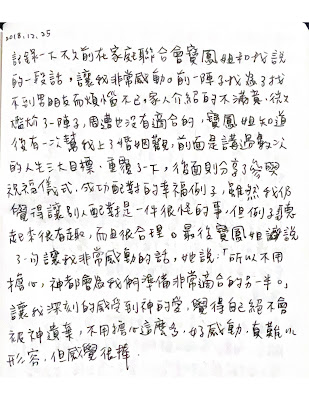 2018.12.25
記錄一下不久前在家庭聯合會寶鳳姐和我說
的一段話,讓我非常感動。前一陣子我為了找
不到男朋友而煩惱不已,家人介紹的不滿意,徵
婚 了一陣子,周遭也沒有適合的,寶鳳姐知道
後有一次幫我上了婚姻觀,前面是講過數次
的人生三大目標,重覆了一下,後面則分享了參與
祝福儀式,成功配對的幸福例子,雖然我仍
覺得讓別人配對是一件很怪的事,但例子聽
起來很有趣,而且很合理。最後寶鳳姐 說
了一句讓我非常感動的話,她說:「所以不用
擔心,神都會為我們準備非常適合的另一半。」
讓我深刻的感受到神的愛,覺得自己絕不會
被神遺棄,不用擔心這麼多,好感動,真難以
形容,但感覺很棒.